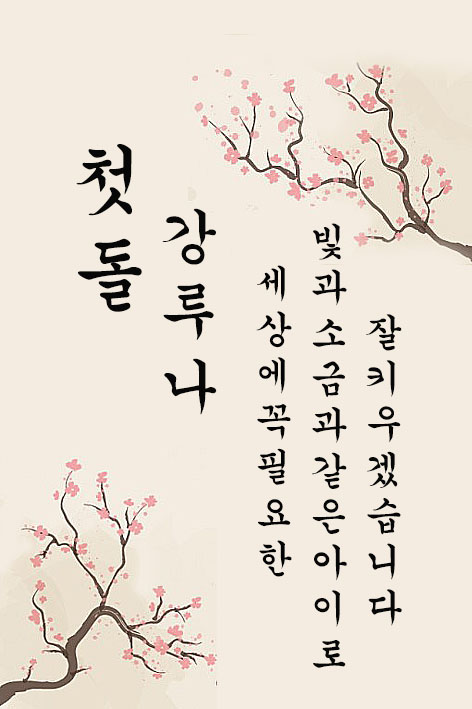 첫돌
강루나
세상에꼭필요한
빛과소금과같은아이로
잘키우겠습니다